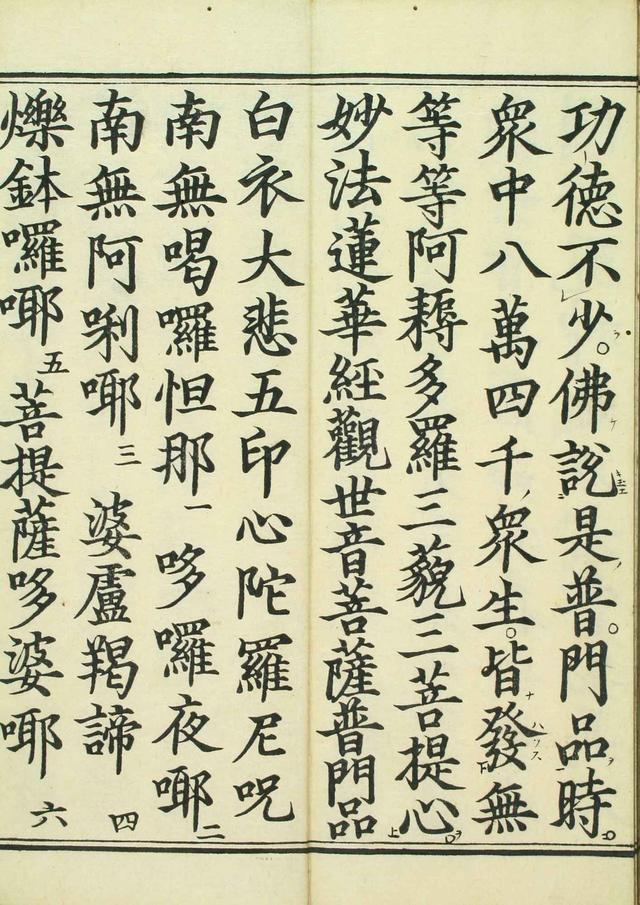 功德不少。佛說是普門品時
眾中八萬四千眾生皆發無
等等阿耨多羅三藐三菩提心
妙法蓮華經觀世音菩薩普門品
白衣大悲五印心陀羅尼呪
南無喝囉怛那一哆囉夜耶二
南無阿唎耶三婆盧羯諦四
爍鉢囉耶五菩提薩哆婆耶六